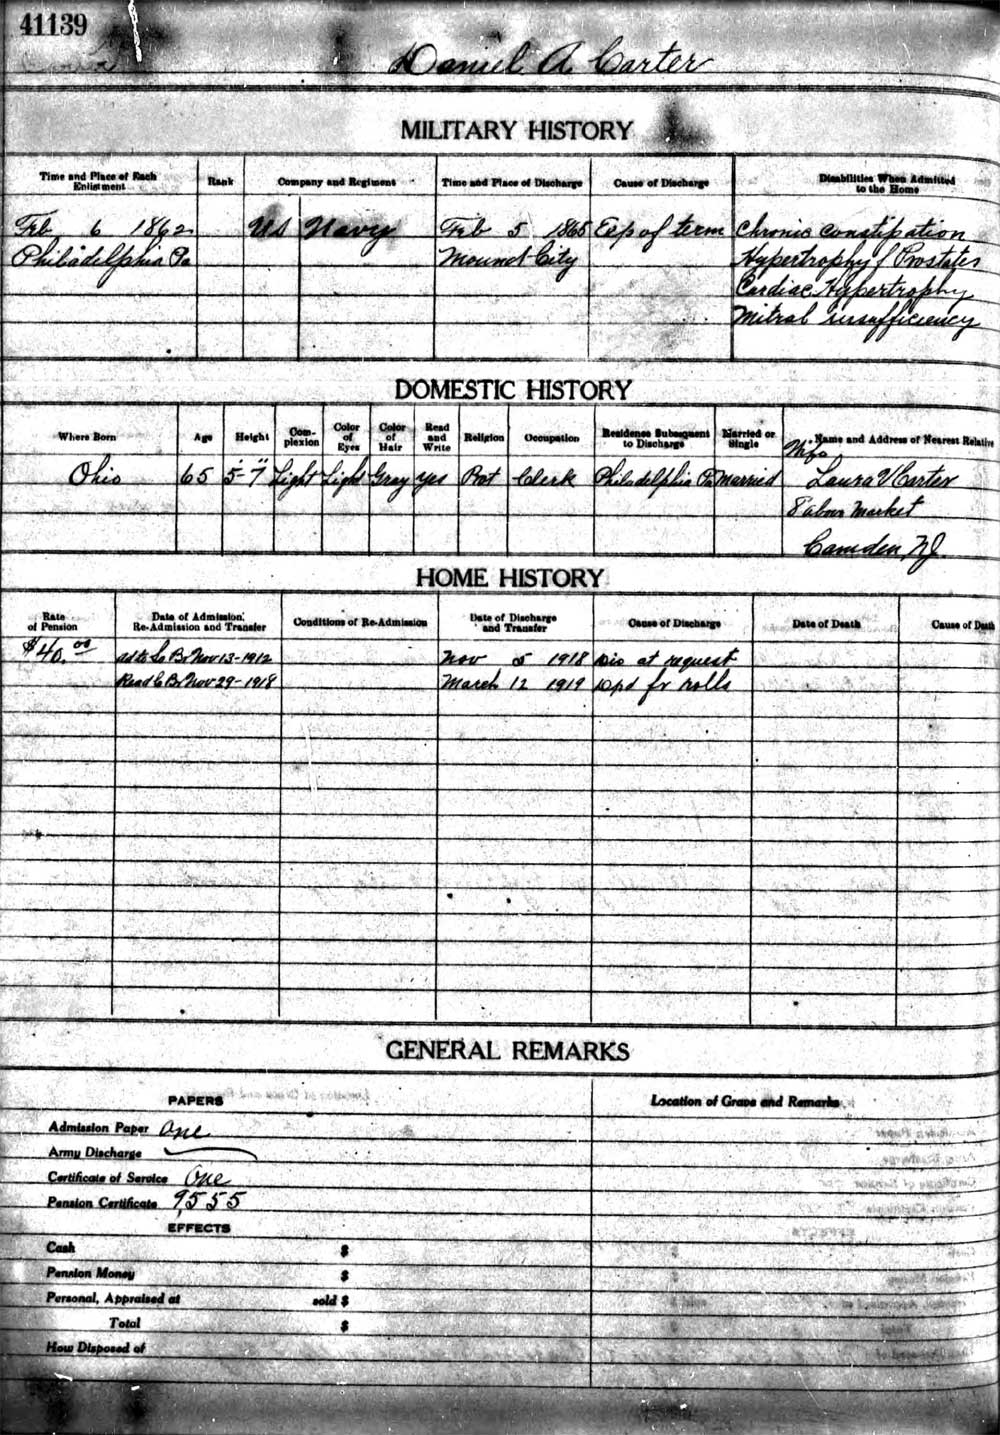 41139
Daniel A Carter
MILITARY HISTORY
Time and Place of Each Enlistment
Rank
Company and Regiment
Time and Place of Discharge
Cause of Discharge
Disabilities When Admitted to the Home
Feb 6 1862 US Navy Feb 5 1865 Exp of term Chronic constipation
Philadelphia Pa Mound City Hypertrophy of Prostates
Cardiac Hypertrophy
Mitral insufficiency
DOMESTIC HISTORY
Where Born
Age
Height
Com-plexion
Color of Eyes
Color of Hair
Read and Write
Religion
Occupation
Residence Subsequent to Discharge
Married or Single
Name and Address of Nearest Relative
Wife
Ohio 65 5'-7" Light Light Gray yes Prot Clerk Philadelphia Pa Married Laura V Carter
8 abov Market
Camden NJ.
HOME HISTORY
Rate of Pension
Date of Admission, Re-Admission and Transfer
Conditions of Re-Admission
Date of Discharge and Transfer
Cause of Discharge
Date of Death
Cause of Death
$40.00 adto So Br Nov 13-1912 Nov 5 1918 Dis at request
Read So Br Nov 29-1918 March 12 1919 Dpd fr rolls
GENERAL REMARKS
PAPERS
Location of Grave and Remarks
Admission Paper One
Army Discharge
Certificate of Service One
Pension Certificate 9,555
EFFECTS
Cash $
Pension Money $
Personal, Appraised at sold $
Total $
How Disposed of